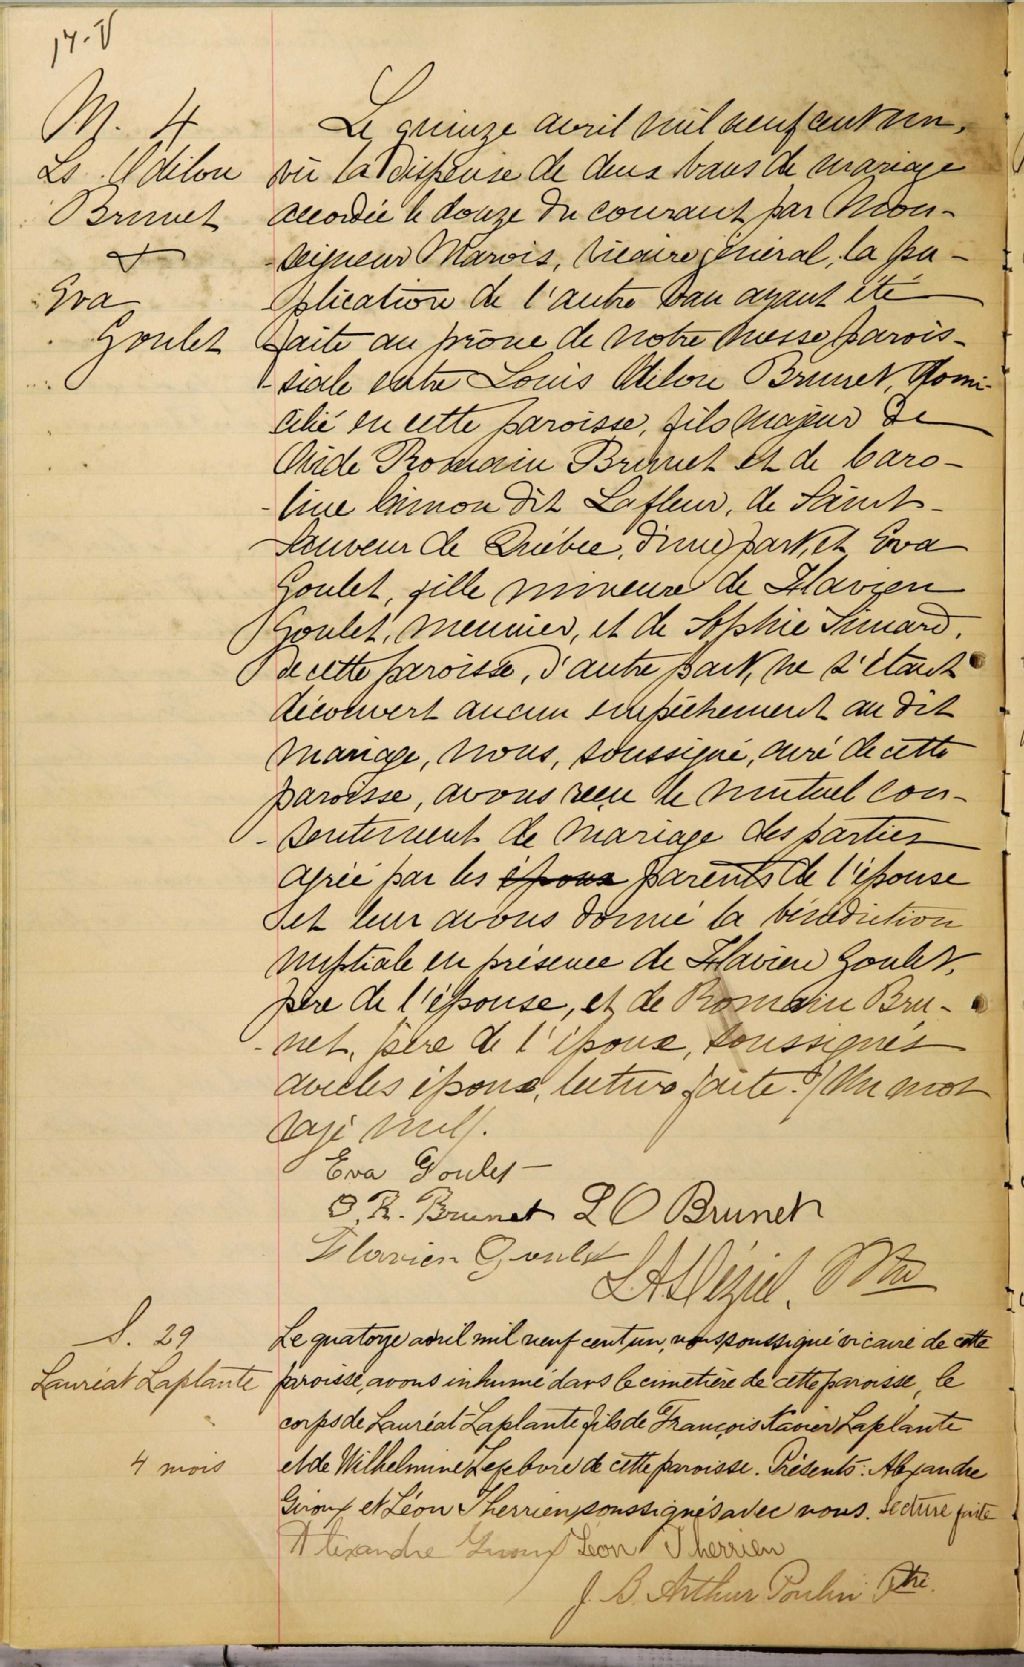 17-V
M. 4
Ls Odilon
Brunet
+
Eva
Goulet
Le quinze avril mil neuf cent un,
vu la dispense de deux bans de mariage
accordée le douze du courant par Mon-
-seigneur Marois, vicaire général, la pu-
-plication de l'autre ban ayant été
faite au prône de notre messe parois-
-siale entre Louis Odilon Brunet, domi-
cilié en cette paroisse, fils majeur de
Ovide Romain Brunet et de Caro-
-line Simon dit Lafleur, de Saint-
Sauveur de Québec, d'une part, et Eva
Goulet, fille mineure de Flavien
Goulet, meunier, et de Sophie Simard,
de cette paroisse, d'autre part, ne s'étant
découvert aucun empêchement au dit
mariage, nous, soussigné, curé de cette
paroisse, avons reçu le mutuel con-
-sentement de mariage des parties
agréé par les époux parents de l'épouse
et leur avons donné la bénédiction
nuptiale en présence de Flavien Goulet,
père de l'épouse, et de Romain Bru-
-net, père de l'époux, soussignés
avec les époux, lecture faite. / Un mot
rayé nul /.
Eva Goulet
O. R. Brunet L O Brunet
Flavien Goulet
Ptre
S. 29
Lauréat Laplante
4 mois
Le quatorze avril mil neuf cent un, nous soussigné vicaire de cette
paroisse, avons inhumé dans le cimetière de cette paroisse, le
corps de Lauréat Laplante fils de François Xavier Laplante
et de Wilhelmine Lefebvre de cette paroisse. Présents: Alexandre
Giroux et Léon Therrien soussignés avec nous. Lecture faite
Alexandre Giroux Léon Therrien
J. B. Arthur Poulin Ptre.